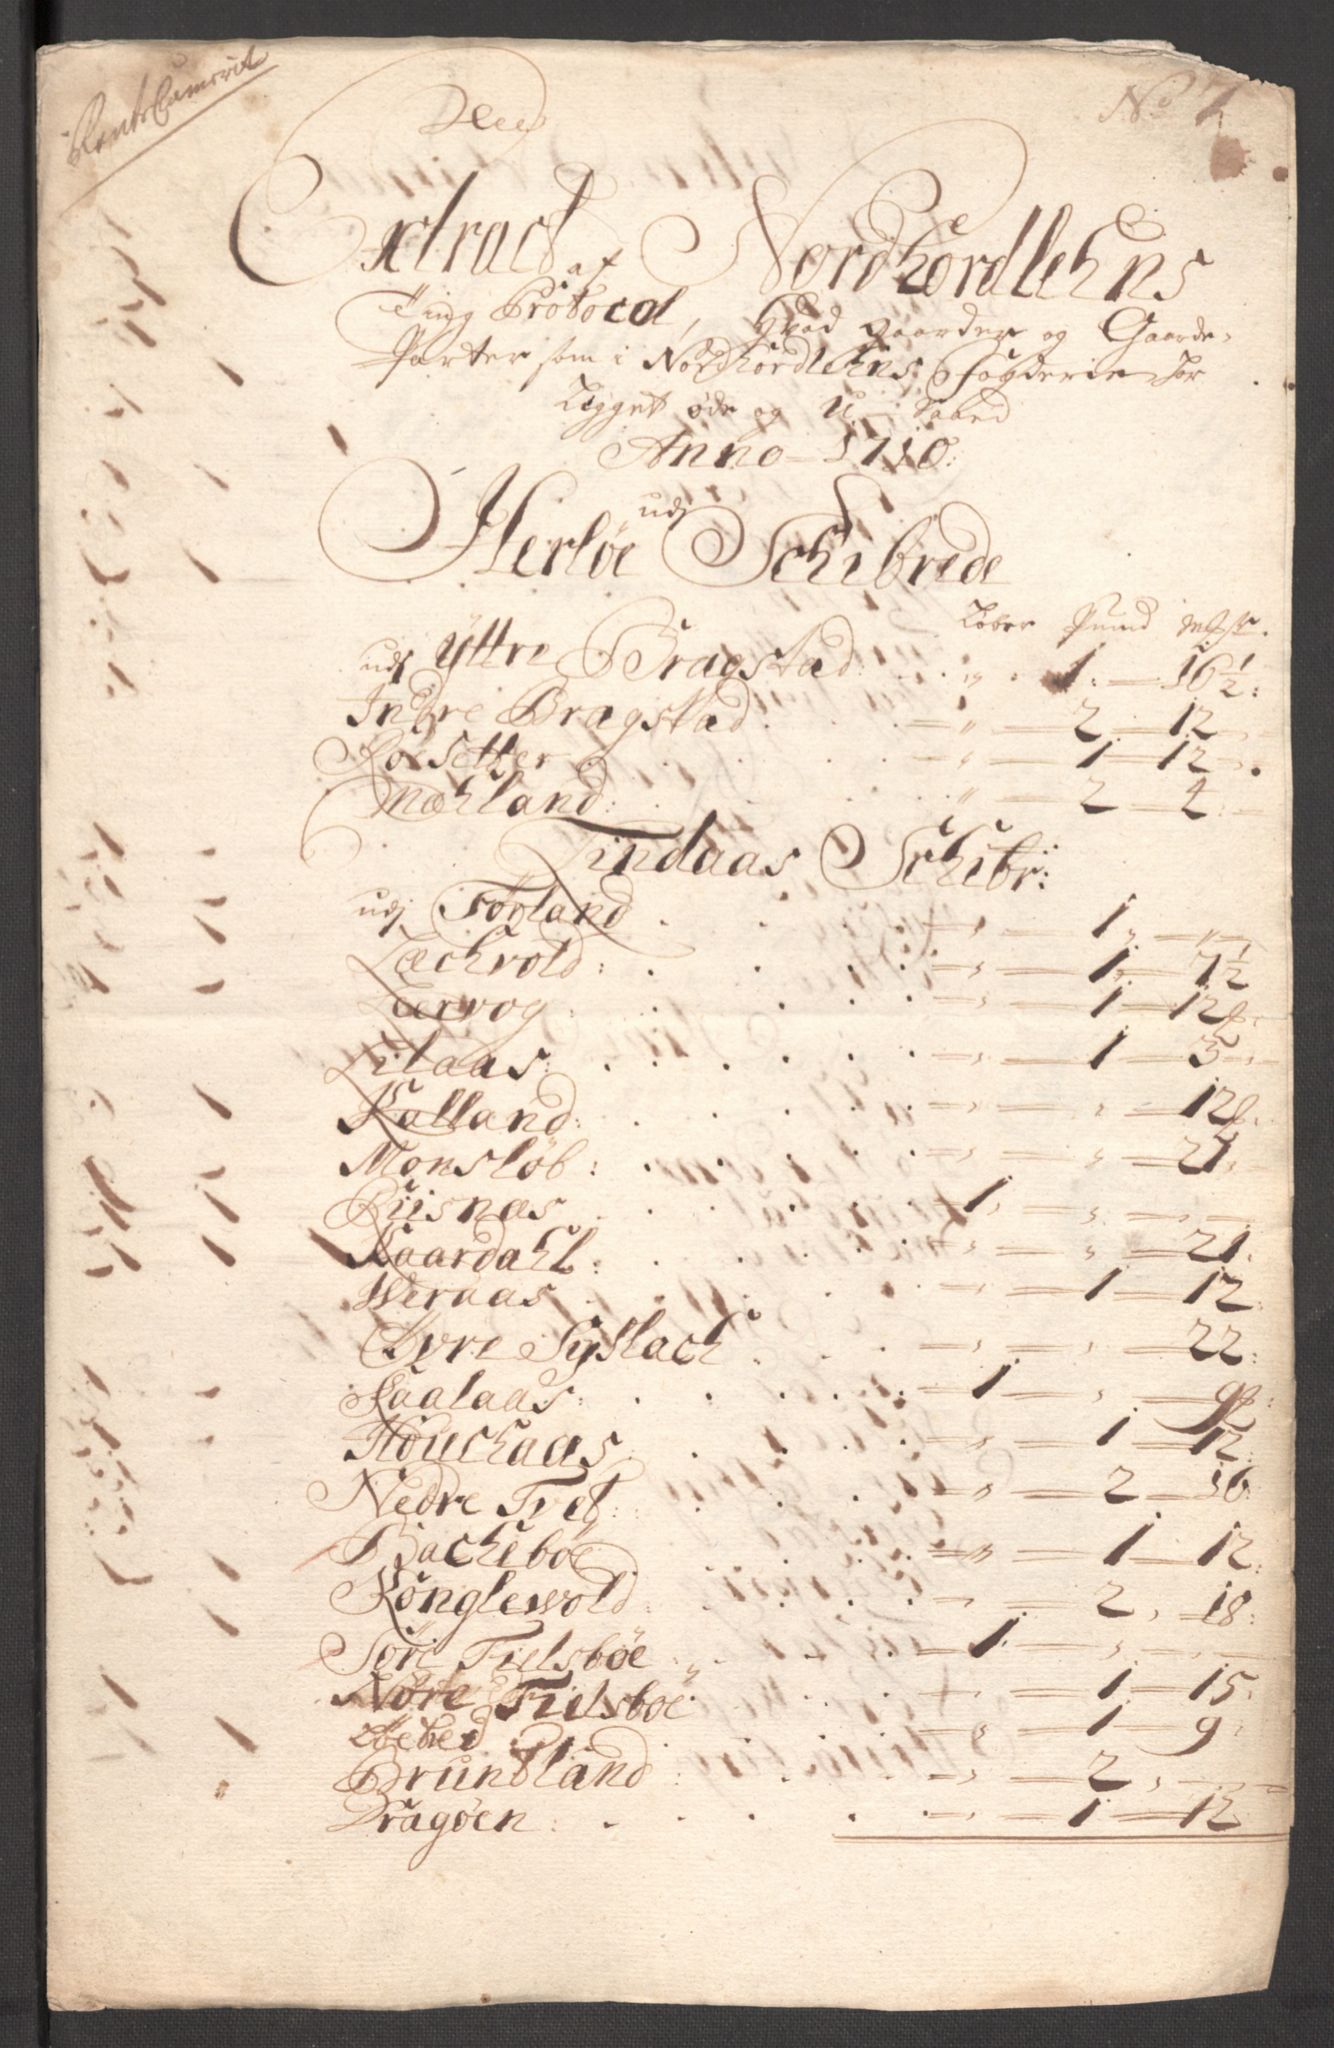 RenteCameret
No 7
Extract af Nordhordlehns
Ting Protocol, Hvad Gaarder og Gaarde-
Parter som i Nordhordlehns Fogderie har
Ligget øde og U-Saaed
Anno 1710:
udj
Herløe Schibrede
Løber Pund mrk
udj Yttre Bragstad " 1 16½
Indre Bragstad " 2 12
Roesetter " 1 12
Mæhland " 2 2
Lindaas Schibr:
udj Fögland " 1 "
Læchvold " 1 7½
Leervog " 1 12
Lilaas " 1 3
Kalland " " 12
Monsløb " " 21
Riisnæs 1 " "
Kaardahl " " 21
Weraas " 1 12
Øvre Syslach " " 22
Faalaas 1 "
Houchaas " 1 12
Nedre Tvet " 2 16
Bachebøe " 1 12
Konglevold " 2 18
Söre Fielsbøe 1 "
Nöre Fielsböe 1 15
" 1 9
Brundland " 2
Dragøen " 1 12